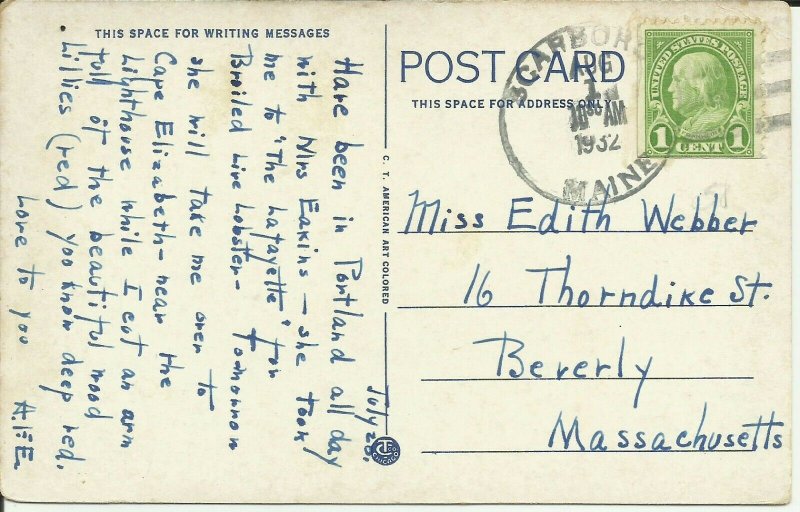 THIS SPACE FOR WRITING MESSAGES
POST CARD
THIS SPACE FOR ADDRESS ONLY
SCARBORO
AUG
1
10 30 AM
1932
MAINE
UNITED STATES POSTAGE
1 1
CENT
Miss Edith Webber
16 Thorndike St.
Beverly
Massachusetts
C. T. AMERICAN ART COLORED
CHICAGO
July 28.
Have been in Portland all day
with Mrs Eakins - she took
me to "The Lafayette" for
Broiled Live Lobster - Tomorrow
she will take me over to
Cape Elizabeth - near the
Lighthouse while I cut an arm
full of the beautiful wood
Lillies (red) you know deep red.
Love to you A.F.E.